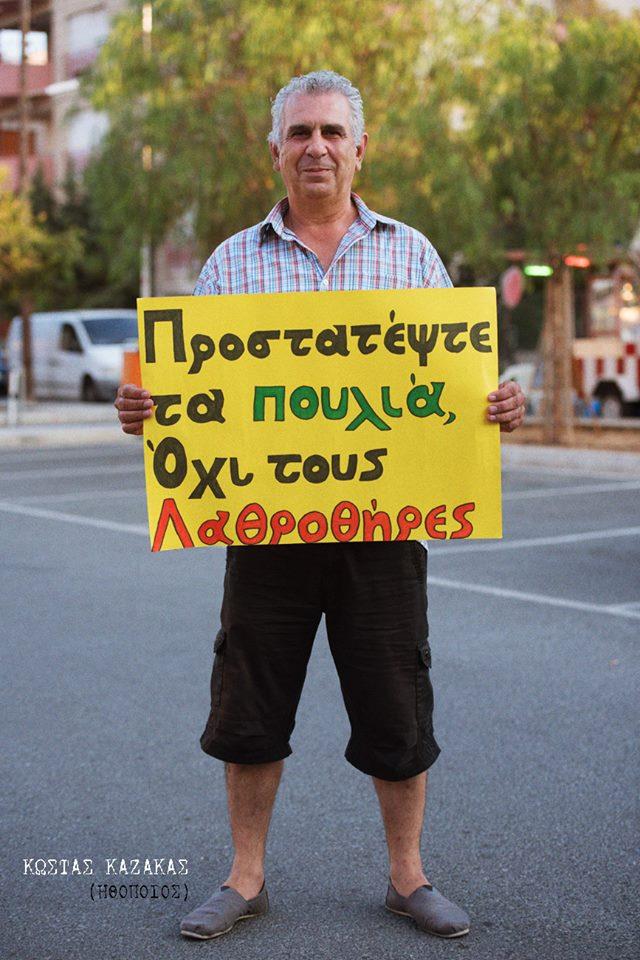 Προστατέψτε
τα πουλιά,
Όχι τους
Λαθροθήρες
ΚΩΣΤΑΣ ΚΑΖΑΚΑΣ
(ΗΘΟΠΟΙΟΣ)